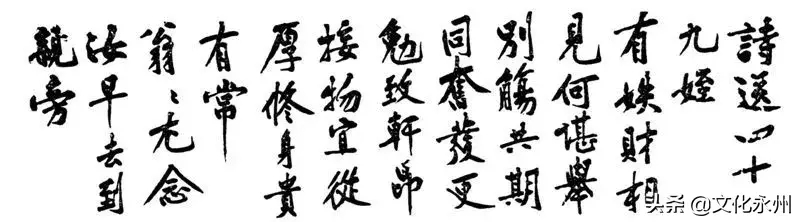 詩送四十
九姪
有娛財相
見何堪舉
別觴共期
同奮發更
勉致軒昂
接物宜從
厚修身貴
有常
翁〻老念
汝早去到
親旁
头条 @文化永州